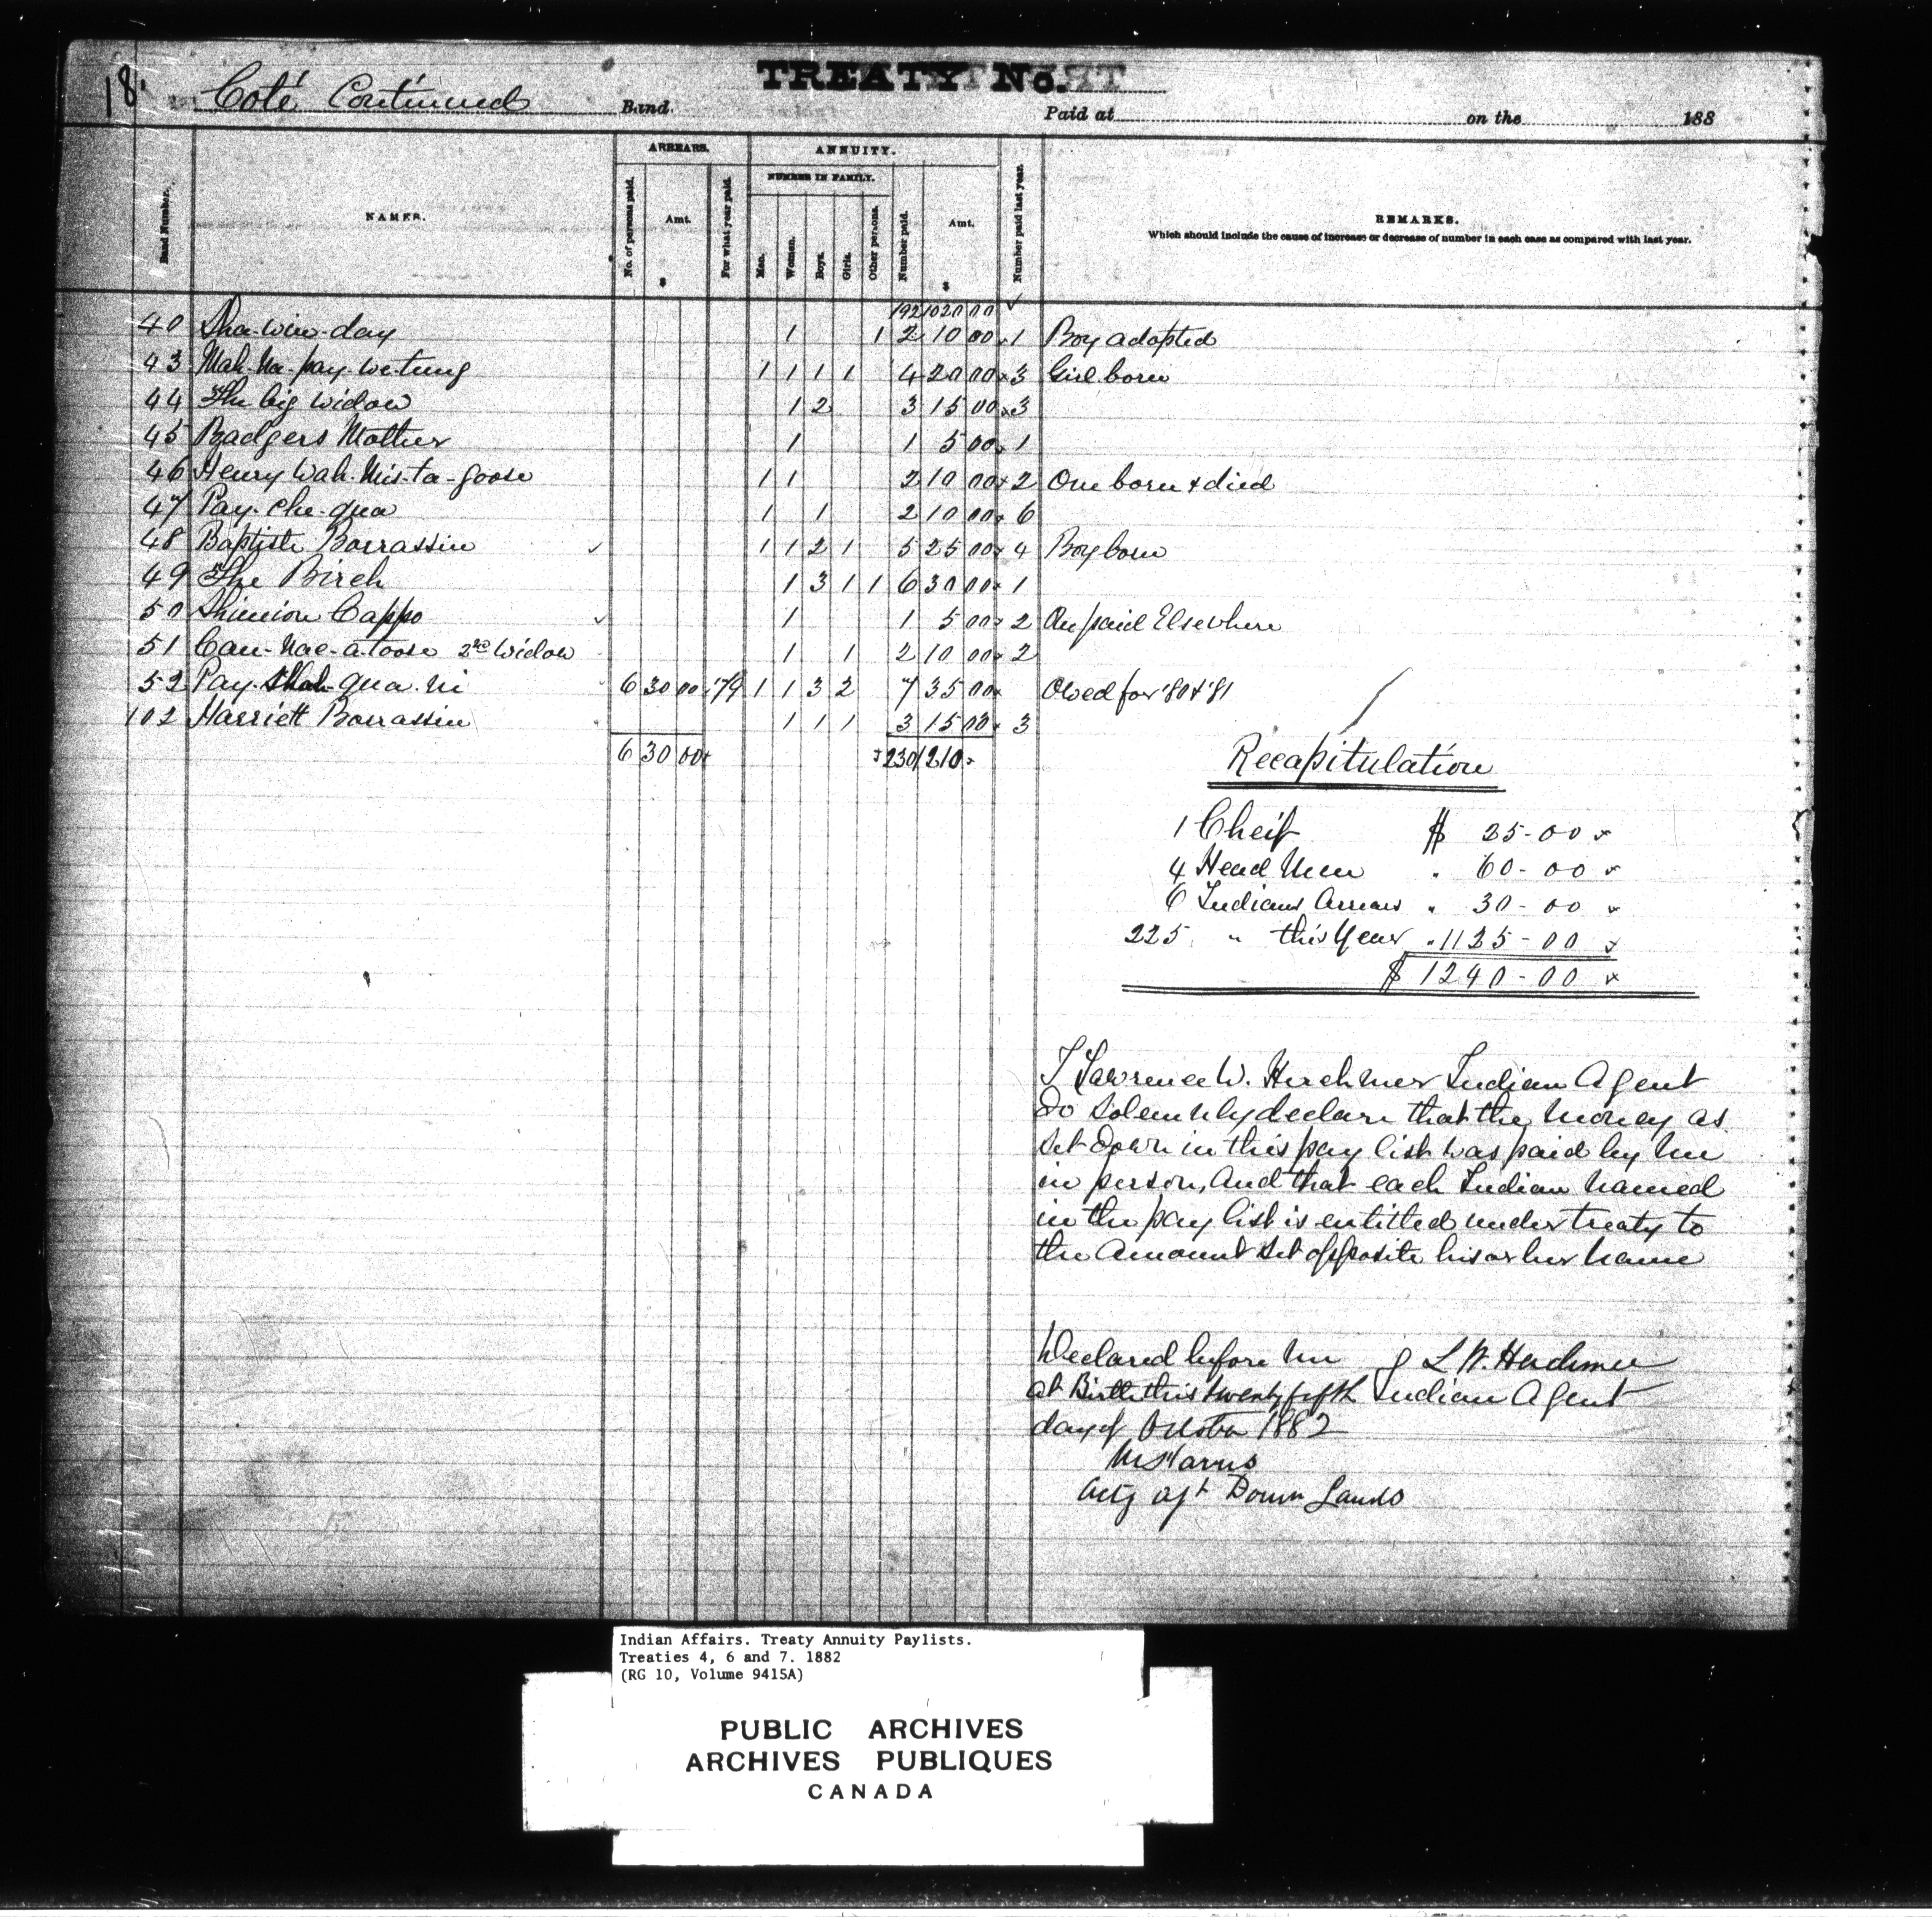 18.
Coté Continued Band.
TREATY No.
Paid at on the 188
Band Number.
NAMES.
ARREARS.
No. of persons paid.
Amt.
$
For what year paid.
ANNUITY.
NUMBER IN FAMILY.
Men.
Women.
Boys.
Girls.
Other persons.
Number paid.
Amt.
$
Number paid last year.
REMARKS.
Which should include the cause of increase or decrease of number in each case as compared with last year.
192 1020 00 ✓
40 Sha-win-day 1 1 2 10 00 1 Boy adopted
43 Mah-na-pay-we-tung 1 1 1 1 4 20 00 3 Girl born
44 The big Widow 1 2 3 15 00 3
45 Badgers Mother 1 1 5 00 1
46 Henry Wah-mis-ta-goose 1 1 2 10 00 2 One born & died
47 Pay-che-qua 1 1 2 10 00 6
48 Baptiste Bourassin ✓ 1 1 2 1 5 25 00 4 Boy born
49 The Birch 1 3 1 1 6 30 00 1
50 Cappo ✓ 1 1 5 00 2 One paid Elsewhere
51 Can-nac-a-toose 2nd Widow 1 1 2 10 00 2
52 Pay-Shah-qua-ni 6 30 00 '79 1 1 3 2 7 35 00 Owed for '80 & '81
102 Harriett Bourassin 1 1 1 3 15 00 3
6 30 00 230 1210
Recapitulation
1 Cheif $ 25-00 x
4 Head Men " 60-00 x
6 Indians Arrears " 30-00 x
225 " this Year " 1125-00 x
$ 1240-00 x
I Lawrence W. Herchmer Indian Agent
do solemnly declare that the money as
set down in this pay list was paid by me
in person, and that each Indian named
in the pay list is entitled under treaty to
the amount set opposite his or her name
Declared before me L W. Herchmer
at Birtle this twenty fifth Indian Agent
day of October 1882
Actg agt Domn Lands
Indian Affairs. Treaty Annuity Paylists.
Treaties 4, 6 and 7. 1882
(RG 10, Volume 9415A)
PUBLIC ARCHIVES
ARCHIVES PUBLIQUES
CANADA